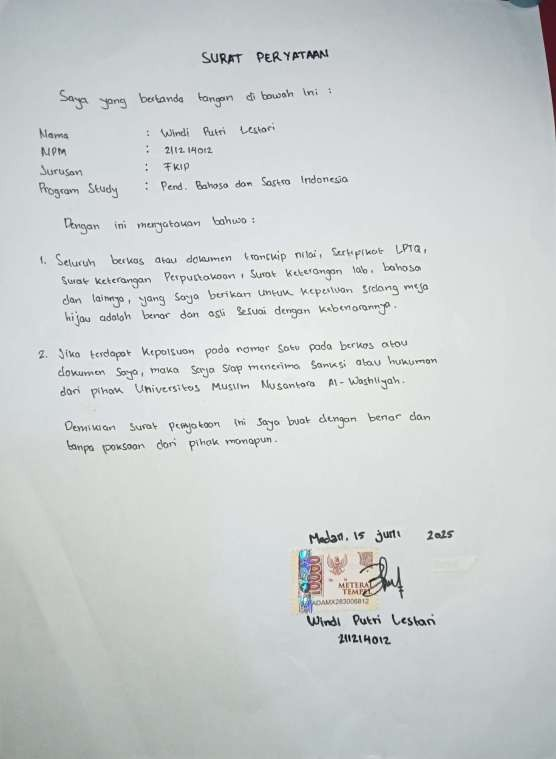 SURAT PERYATAAN
Saya yang bertanda tangan di bawah ini :
Nama : Windi Putri Lestari
NPM : 211214012
Jurusan : FKIP
Program Study : Pend. Bahasa dan Sastra Indonesia
Dengan ini menyatakan bahwa :
1. Seluruh berkas atau dokumen transkip nilai, Sertifikat LPTQ,
Surat Keterangan Perpustakaan, Surat Keterangan lab. bahasa
dan lainnya, yang Saya berikan untuk keperluan Sidang meja
hijau adalah benar dan asli Sesuai dengan kebenarannya.
2. Jika terdapat kepalsuan pada nomor Satu pada berkas atau
dokumen Saya, maka Saya Siap menerima Sanksi atau hukuman
dari pihak Universitas Muslim Nusantara Al-Washliyah.
Demikian Surat Peryataan ini Saya buat dengan benar dan
tanpa paksaan dari pihak manapun.
Medan, 15 juni 2025
10000
METERAI
TEMPEL
ADAMX283006812
Windi Putri Lestari
211214012